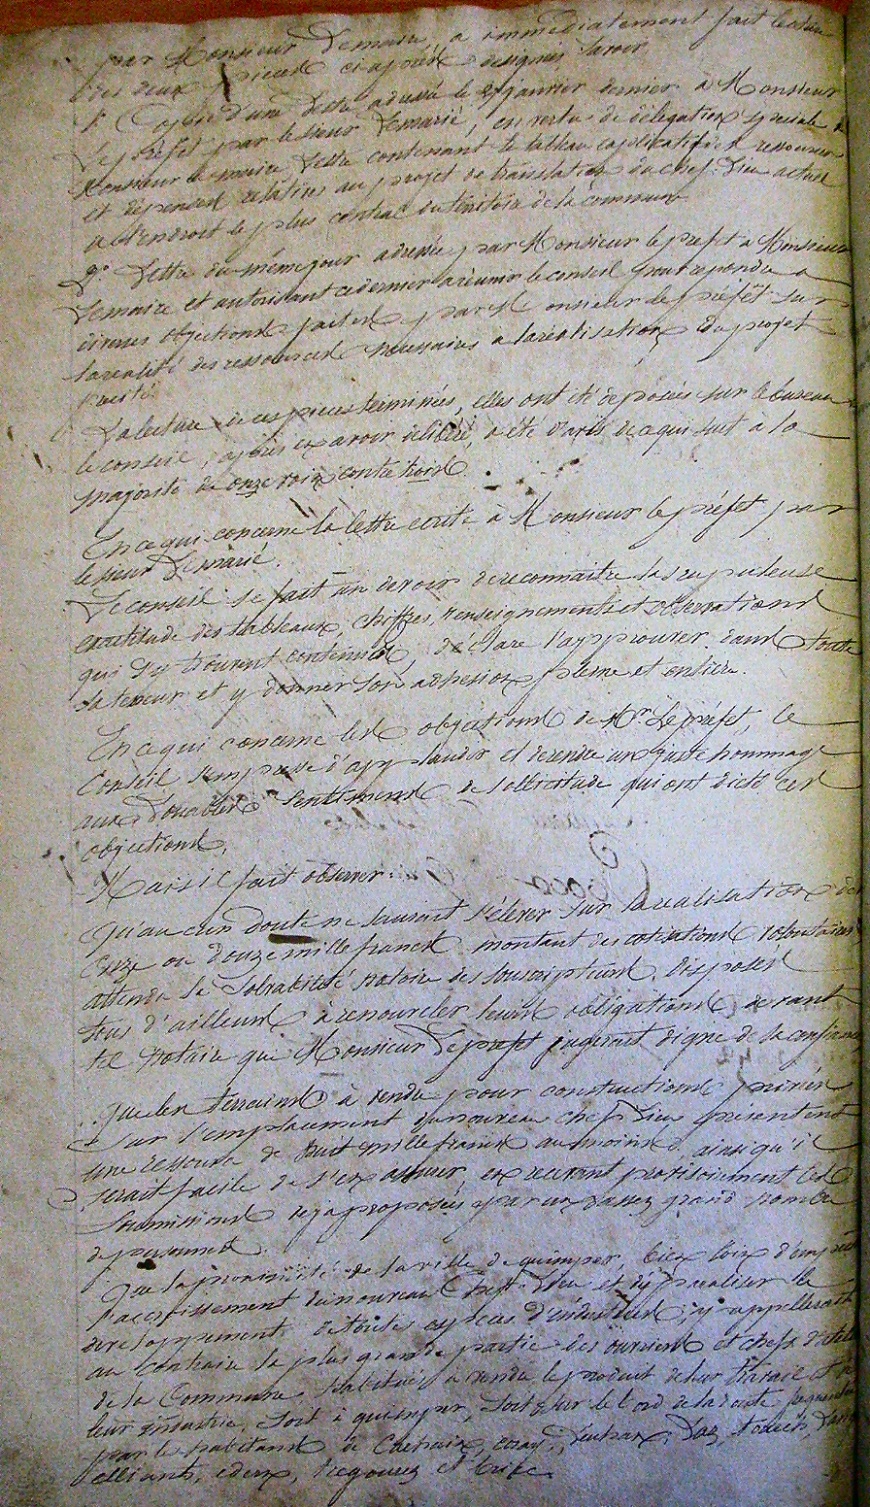 par Monsieur Lemaire, a immédiatement fait lecture
des deux pièces ci après designées savoir
1° Copie d'une lettre adressée le 27 janvier dernier à Monsieur
Le préfet par le sieur Lemarié, en vertu de délégation spéciale de
Monsieur le maire, lettre contenant le tableau explicatif des ressources
et dépenses relatives au projet de translation du chef-lieu actuel
à l'endroit le plus central du territoire de la commune
2° Lettre du même jour adressée par Monsieur le préfet à Monsieur
Lemaire et autorisant ce dernier à réunir le conseil pour repondre a
diverses objections faites par Monsieur le préfet sur
la réalité des ressources nécessaires à la réalisation du projet
précité.
La lecture de ces pièces terminées, elles ont été déposées sur le bureau
le conseil, après en avoir délibéré, a été d'avis de ce qui suit à la
majorité de onze voix contre trois.
En ce qui concerne la lettre écrite à Monsieur le préfet par
le sieur Lemarié.
Le conseil se fait un devoir de reconnaitre la scrupuleuse
exactitude des tableaux, chiffres, renseignements et observations
qui s'y trouvent contenus, déclare l'approuver dans toute
sa teneur et y donner son adhésion pleine et entière.
En ce qui concerne les objections de Mr. Le préfet, le
Conseil s'empresse d'applaudir et de rendre un juste hommage
aux louables sentiments de sollicitude qui ont dicté ces
objections.
Mais il fait observer:
Qu'aucun doute ne saurait s'élever sur la réalisation des
onze ou douze mille francs montant des cotisations volontaires
attendu la solvabilité notoire des souscripteurs disposés
tous d'ailleurs à renouveler leurs obligations devant
tel notaire que Monsieur Le préfet jugerait digne de sa confiance
que les terrains à vendre pour constructions privées
sur l'emplacement du nouveau chef-lieu présentent
une ressource de huit mille francs au moins ainsi qu'il
serait facile de s'en assurer, en recevant provisoirement les
soumissions déjà proposées par un assez grand nombre
de personnes.
Que la proximité de la ville de quimper, bien loin d'empêcher
l'accroissement du nouveau Chef-lieu et d'y paralyser le
développement de toutes espèces d'industries, y appellerait
au contraire la plus grande partie des ouvriers et chefs d'atelier
de la Commune habitués à vendre le produit de leur travail et de
leur industrie, soit à quimper, soit sur le bord de la route
par les habitants de Carhaix, coray, Leuhan, Laz,
elliant, edern, Tregourez et briec